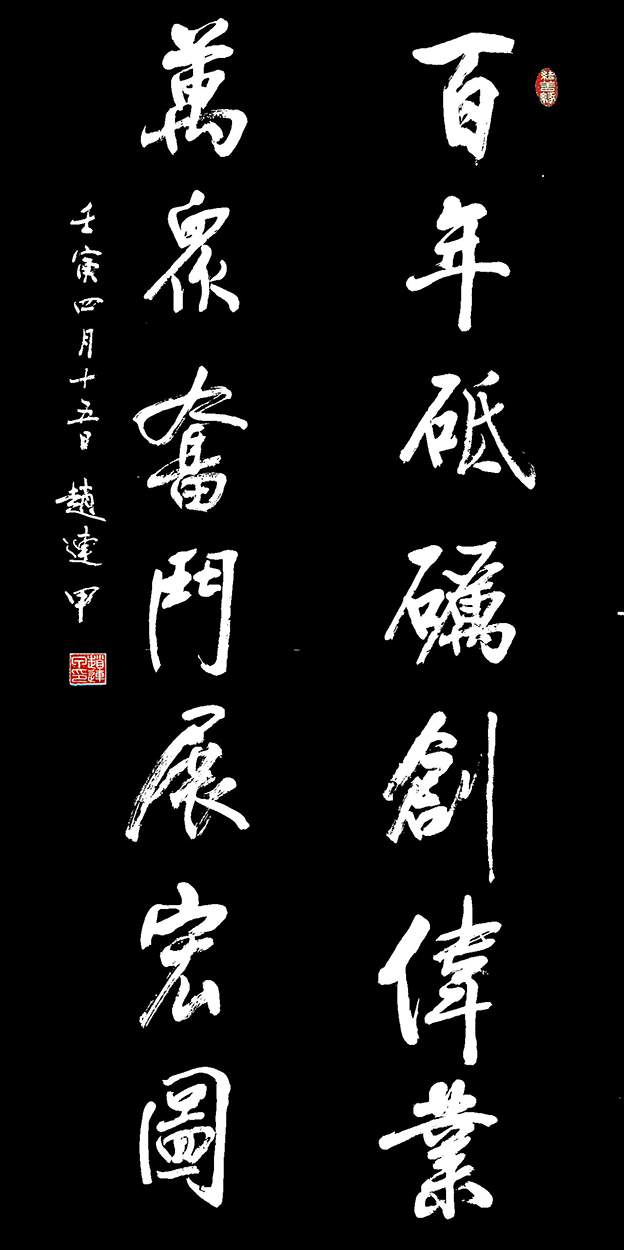 百年砥礪創偉業
萬眾奮鬥展宏圖
壬寅四月十五日 趙連甲